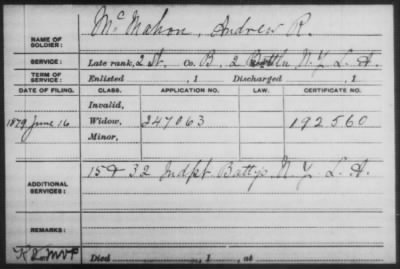 NAME OF SOLDIER: McMahon, Andrew R.
SERVICE: Late rank, 2 Lt. Co. B, 2 Battn N. Y. L. A.
TERM OF SERVICE: Enlisted , 1 Discharged , 1
DATE OF FILING. CLASS. APPLICATION NO. LAW. CERTIFICATE NO.
Invalid,
1879 June 16 Widow, 247063 192560
Minor,
ADDITIONAL SERVICES: 15 & 32 Indpt Battys N. Y. L. A.
REMARKS:
Died , 1 , at